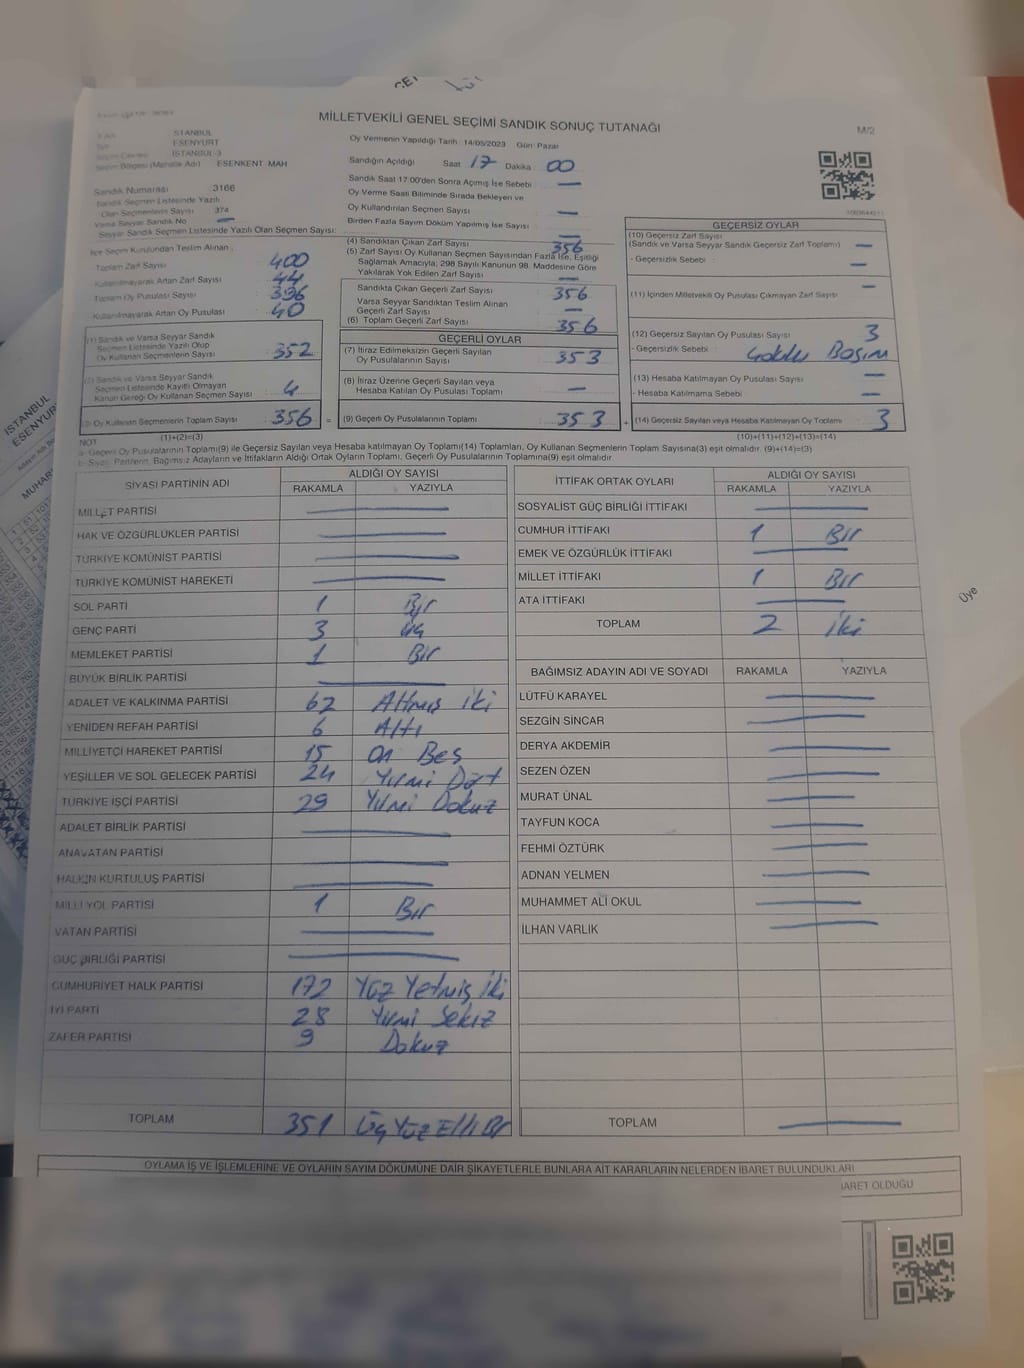 MİLLETVEKİLİ GENEL SEÇİMİ SANDIK SONUÇ TUTANAĞI
M/2
İSTANBUL
ESENYURT
İSTANBUL-3
Seçim Bölgesi (Mahalle Adı) ESENKENT MAH
Sandık Numarası 3166
Sandık Seçmen Listesinde Yazılı
Olan Seçmenlerin Sayısı 374
Varsa Seyyar Sandık No —
Seyyar Sandık Seçmen Listesinde Yazılı Olan Seçmen Sayısı:
Oy Vermenin Yapıldığı Tarih 14/05/2023 Gün Pazar
Sandığın Açıldığı Saat 17 Dakika 00
Sandık Saat 17:00'den Sonra Açımış İse Sebebi —
Oy Verme Saati Bitiminde Sırada Bekleyen ve
Oy Kullandırılan Seçmen Sayısı —
Birden Fazla Sayım Döküm Yapılmış İse Sayısı —
İlçe Seçim Kurulundan Teslim Alınan
Toplam Zarf Sayısı : 400
Kullanılmayarak Artan Zarf Sayısı : 44
Toplam Oy Pusulası Sayısı : 396
Kullanılmayarak Artan Oy Pusulası : 40
(1) Sandık ve Varsa Seyyar Sandık
Seçmen Listesinde Yazılı Olup
Oy Kullanan Seçmenlerin Sayısı : 352
(2) Sandık ve Varsa Seyyar Sandık
Seçmen Listesinde Kayıtlı Olmayan
Kanun Gereği Oy Kullanan Seçmen Sayısı : 4
(3) Oy Kullanan Seçmenlerin Toplam Sayısı : 356
(1)+(2)=(3)
(4) Sandıktan Çıkan Zarf Sayısı 356
(5) Zarf Sayısı Oy Kullanan Seçmen Sayısından Fazla İse, Eşitliği
Sağlamak Amacıyla; 298 Sayılı Kanunun 98. Maddesine Göre
Yakılarak Yok Edilen Zarf Sayısı —
Sandıkta Çıkan Geçerli Zarf Sayısı 356
Varsa Seyyar Sandıktan Teslim Alınan
Geçerli Zarf Sayısı —
(6) Toplam Geçerli Zarf Sayısı 356
GEÇERLİ OYLAR
(7) İtiraz Edilmeksizin Geçerli Sayılan
Oy Pusulalarının Sayısı 353
(8) İtiraz Üzerine Geçerli Sayılan veya
Hesaba Katılan Oy Pusulası Toplamı —
= (9) Geçerli Oy Pusulalarının Toplamı 353
GEÇERSİZ OYLAR
(10) Geçersiz Zarf Sayısı
(Sandık ve Varsa Seyyar Sandık Geçersiz Zarf Toplamı) —
- Geçersizlik Sebebi : —
(11) İçinden Milletvekili Oy Pusulası Çıkmayan Zarf Sayısı —
(12) Geçersiz Sayılan Oy Pusulası Sayısı 3
- Geçersizlik Sebebi :
(13) Hesaba Katılmayan Oy Pusulası Sayısı —
- Hesaba Katılmama Sebebi —
+ (14) Geçersiz Sayılan veya Hesaba Katılmayan Oy Toplamı 3
(10)+(11)+(12)+(13)=(14)
NOT
a- Geçerli Oy Pusulalarının Toplamı(9) ile Geçersiz Sayılan veya Hesaba katılmayan Oy Toplamı(14) Toplamları, Oy Kullanan Seçmenlerin Toplam Sayısına(3) eşit olmalıdır. (9)+(14)=(3)
b- Siyasi Partilerin, Bağımsız Adayların ve İttifakların Aldığı Ortak Oyların Toplamı, Geçerli Oy Pusulalarının Toplamına(9) eşit olmalıdır.
SİYASİ PARTİNİN ADI ALDIĞI OY SAYISI
RAKAMLA YAZIYLA
MİLLET PARTİSİ —
HAK VE ÖZGÜRLÜKLER PARTİSİ —
TÜRKİYE KOMÜNİST PARTİSİ —
TÜRKİYE KOMÜNİST HAREKETİ —
SOL PARTİ 1 Bir
GENÇ PARTİ 3 üç
MEMLEKET PARTİSİ 1 Bir
BÜYÜK BİRLİK PARTİSİ —
ADALET VE KALKINMA PARTİSİ 62 Altmış iki
YENİDEN REFAH PARTİSİ 6 Altı
MİLLİYETÇİ HAREKET PARTİSİ 15 On Beş
YEŞİLLER VE SOL GELECEK PARTİSİ 24 Yirmi Dört
TÜRKİYE İŞÇİ PARTİSİ 29 Yirmi Dokuz
ADALET BİRLİK PARTİSİ —
ANAVATAN PARTİSİ —
HALKIN KURTULUŞ PARTİSİ —
MİLLİ YOL PARTİSİ 1 Bir
VATAN PARTİSİ —
GÜÇ BİRLİĞİ PARTİSİ —
CUMHURİYET HALK PARTİSİ 172 Yüz Yetmiş İki
İYİ PARTİ 28 Yirmi Sekiz
ZAFER PARTİSİ 9 Dokuz
TOPLAM 351 Üç Yüz Elli Bir
İTTİFAK ORTAK OYLARI ALDIĞI OY SAYISI
RAKAMLA YAZIYLA
SOSYALİST GÜÇ BİRLİĞİ İTTİFAKI —
CUMHUR İTTİFAKI 1 Bir
EMEK VE ÖZGÜRLÜK İTTİFAKI —
MİLLET İTTİFAKI 1 Bir
ATA İTTİFAKI —
TOPLAM 2 iki
BAĞIMSIZ ADAYIN ADI VE SOYADI RAKAMLA YAZIYLA
LÜTFÜ KARAYEL —
SEZGİN SİNCAR —
DERYA AKDEMİR —
SEZEN ÖZEN —
MURAT ÜNAL —
TAYFUN KOCA —
FEHMİ ÖZTÜRK —
ADNAN YELMEN —
MUHAMMET ALİ OKUL —
İLHAN VARLIK —
TOPLAM —
OYLAMA İŞ VE İŞLEMLERİNE VE OYLARIN SAYIM DÖKÜMÜNE DAİR ŞİKAYETLERLE BUNLARA AİT KARARLARIN NELERDEN İBARET BULUNDUKLARI
BARET OLDUĞU
İSTANBUL
Üye